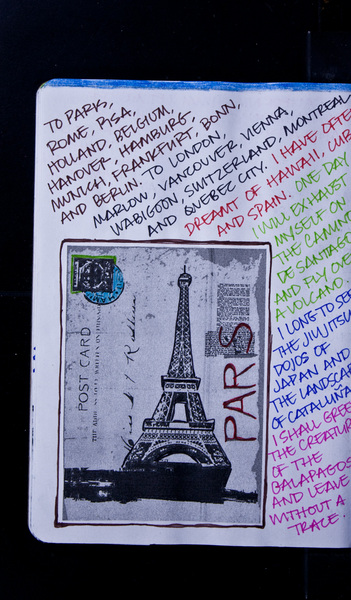 TO PARK,
ROME, PISA,
HOLLAND, BELGIUM,
HANOVER, HAMBURG,
MUNICH, FRANKFURT, BONN,
AND BERLIN. TO LONDON,
MARLOW, VANCOUVER, VIENNA,
WABIGOON, SWITZERLAND, MONTREAL
AND QUEBEC CITY. I HAVE OFTE
DREAMT OF HAWAII, CUB
AND SPAIN. ONE DAY
I WILL EXHAUST
MYSELF ON
THE CAMINO
DE SANTIAG
AND FLY OVE
A VOLCANO.
I LONG TO SEE
THE JIUJITSU
DOJOS OF
JAPAN AND
THE LANDSCA
OF CATALUÑA
I SHALL GREE
THE CREATUR
OF THE
GALAPAGOS
AND LEAVE
WITHOUT A
TRACE.
POST CARD
PARIS